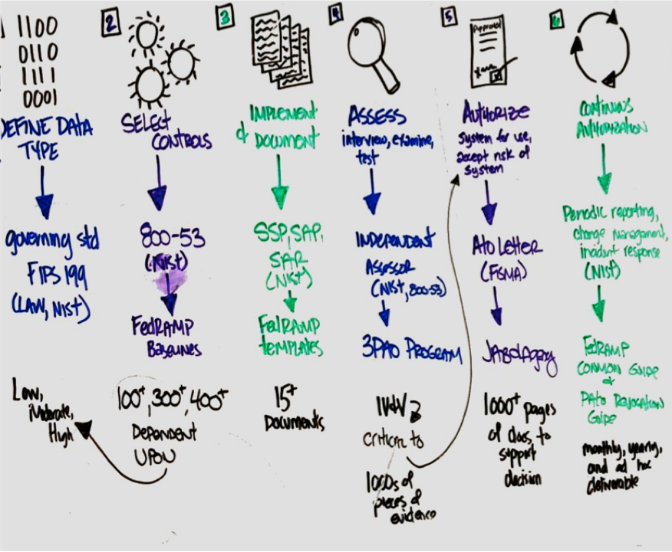 1100
0110
1111
0001
DEFINE DATA
TYPE
governing std
FIPS 199
(LAW, NIST)
Low,
Moderate,
High
2
SELECT
CONTROLS
800-53
(NIST)
FedRAMP
Baselines
100+, 300+, 400+
Dependent
UPON
3
IMPLEMENT
& DOCUMENT
SSP, SAP,
SAR
(NIST)
FedRAMP
templates
15+
Documents
4
ASSESS
interview, examine,
test
INDEPENDENT
Assessor
(NIST, 800-53)
3PAO PROGRAM
critical to
1000s of
pieces of
evidence
5
Approval
AUTHORIZE
System for use,
accept risk of
system
Ato Letter
(FISMA)
JAB or Agency
1000+ pages
of docs, to
support
decision
6
CONTINUOUS
AUTHORIZATION
Periodic reporting,
change management,
incident response
(NIST)
FedRAMP
COMMON GUIDE
&
PAto Revocation
Guide
monthly, yearly,
and ad hoc
deliverable